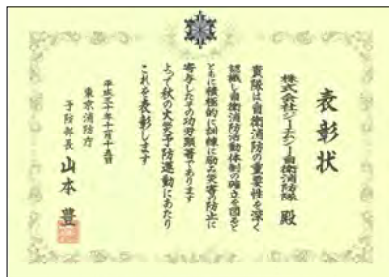 表彰状
株式会社ジーエムシー自衛消防隊 殿
貴隊は自衛消防の重要性を深く
認識し自衛消防活動体制の確立を図ると
ともに積極的に訓練に励み災害の防止に
寄与したその功労顕著であります
よって秋の火災予防運動にあたり
これを表彰します
平成三十年十一月十五日
東京消防庁
予防部長 山本豊